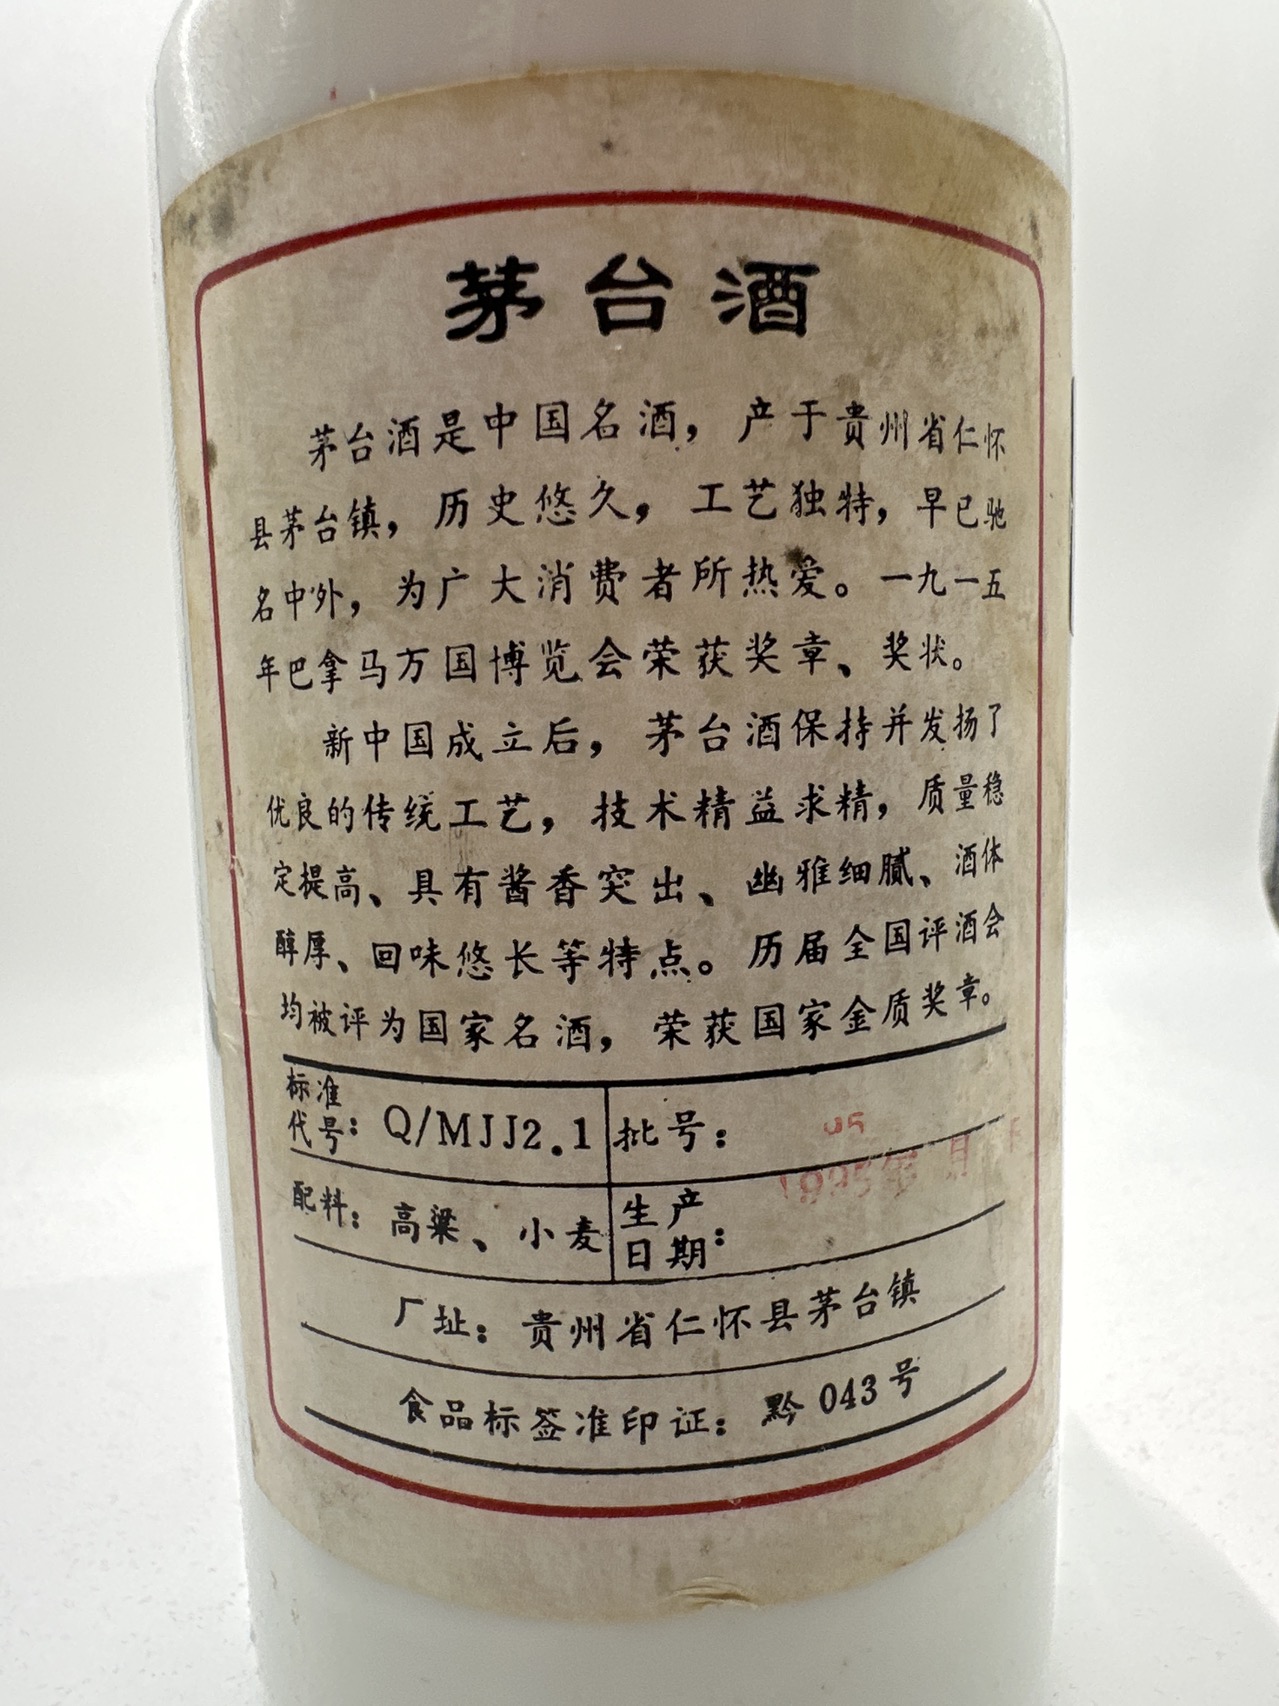 茅台酒
茅台酒是中国名酒，产于贵州省仁怀
县茅台镇，历史悠久，工艺独特，早已驰
名中外，为广大消费者所热爱。一九一五
年巴拿马万国博览会荣获奖章、奖状。
新中国成立后，茅台酒保持并发扬了
优良的传统工艺，技术精益求精，质量稳
定提高、具有酱香突出、幽雅细腻、酒体
醇厚、回味悠长等特点。历届全国评酒会
均被评为国家名酒，荣获国家金质奖章。
标准代号：Q/MJJ2.1 批号：
配料：高粱、小麦 生产日期：1995年 月
厂址：贵州省仁怀县茅台镇
食品标签准印证：黔043号